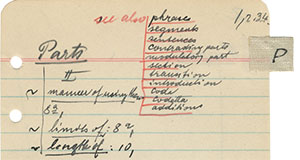 see also phrase 1, 2, 34
segments
sentences
contrasting parts
modulatory part
section
transition
introduction
coda
codetta
additions
P
Parts
II
~ manner of using them
82,
~ limits of: 82,
~ length of: 10,